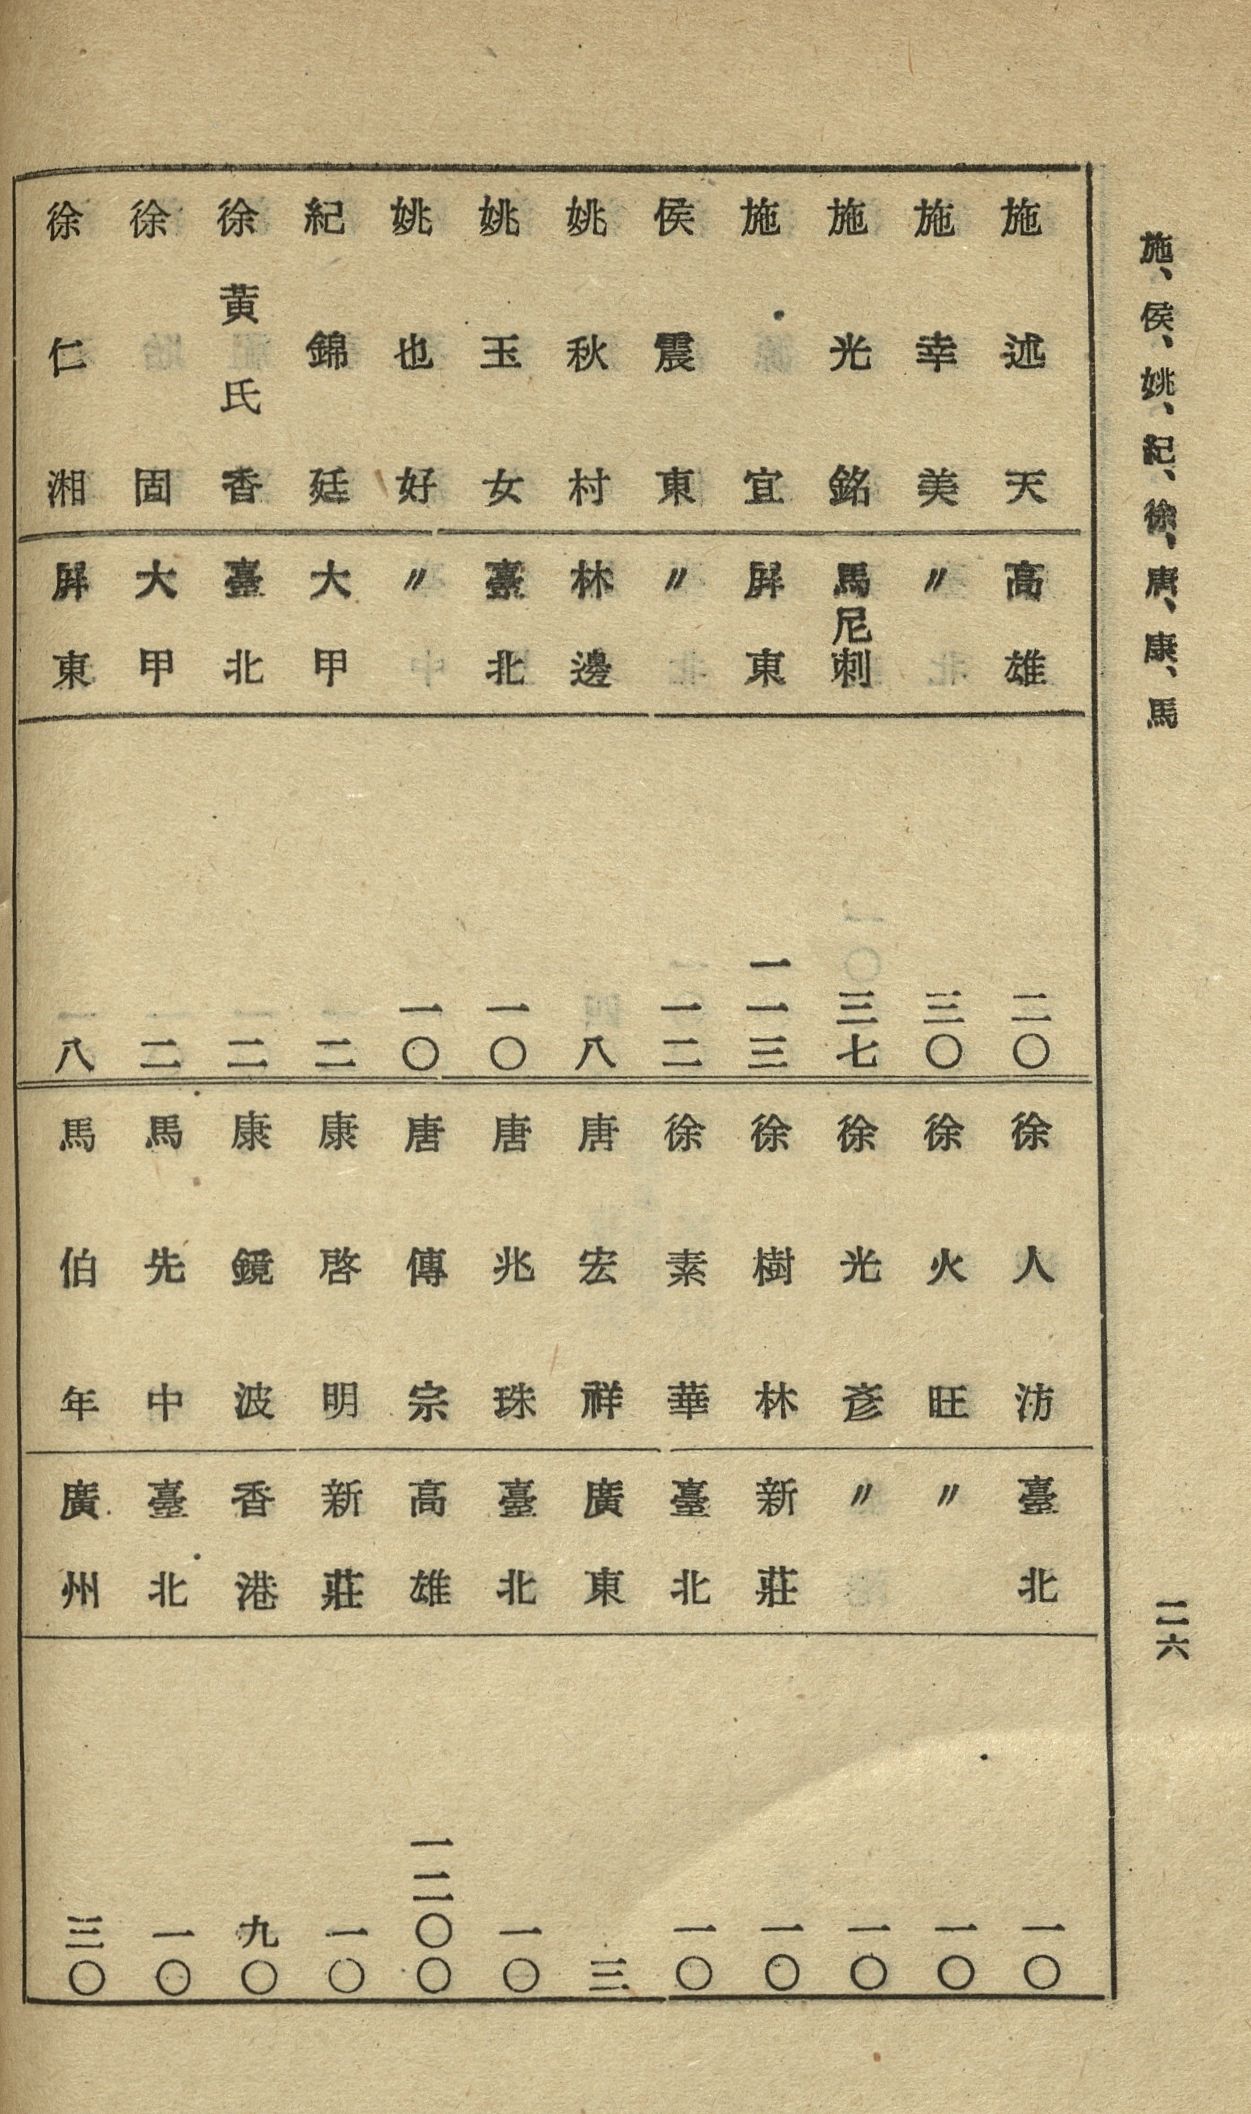 施、侯、姚、紀、徐、唐、康、馬
二六
施述天 高雄 二〇
施幸美 〃 三〇
施光銘 馬尼刺 三七
施宜 屏東 一一三
侯震東 〃 一二
姚秋村 林邊 八
姚玉女 臺北 一〇
姚也好 〃 一〇
紀錦廷 大甲 二
徐黃氏香 臺北 二
徐固 大甲 二
徐仁湘 屏東 八
徐人汸 臺北 一〇
徐火旺 〃 一〇
徐光彥 〃 一〇
徐樹林 新莊 一〇
徐素華 臺北 一〇
唐宏祥 廣東 三
唐兆珠 臺北 一〇
唐傳宗 高雄 一二〇〇
康啓明 新莊 一〇
康鏡波 香港 九〇
馬先中 臺北 一〇
馬伯年 廣州 三〇